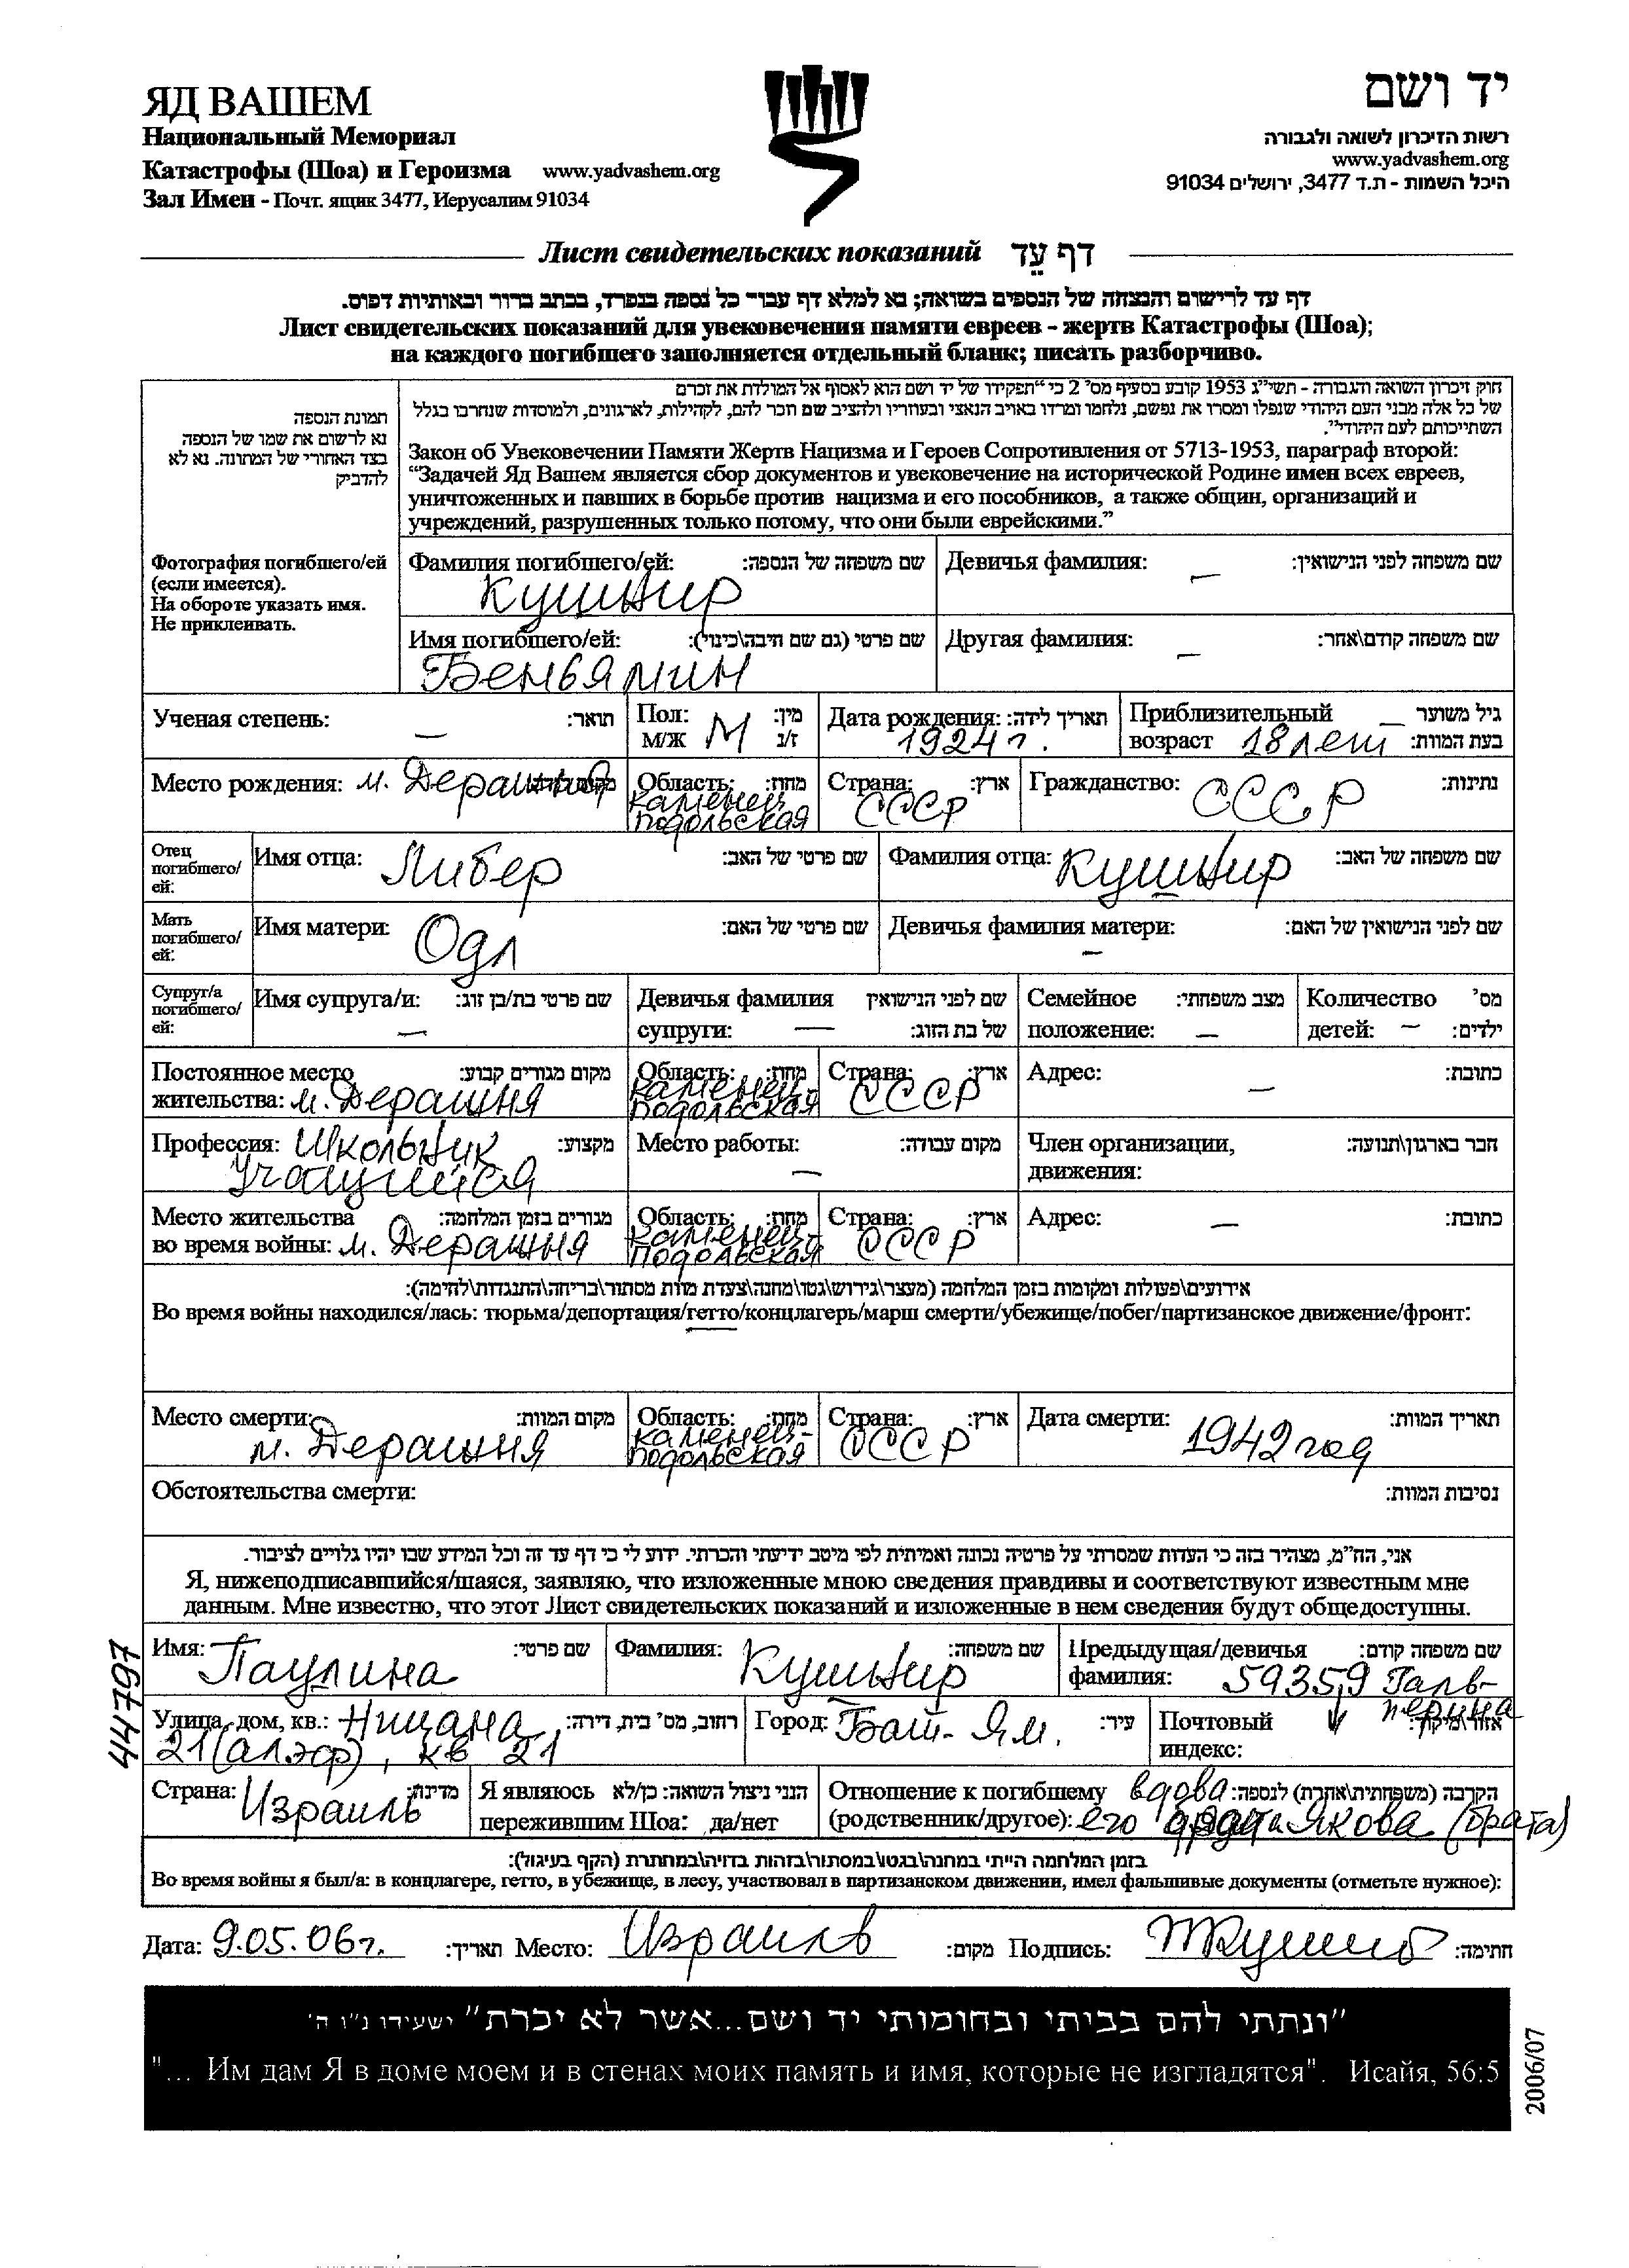 ЯД ВАШЕМ
Национальный Мемориал
Катастрофы (Шоа) и Героизма www.yadvashem.org
Зал Имен - Почт. ящик 3477, Иерусалим 91034
יד ושם
רשות הזיכרון לשואה ולגבורה
www.yadvashem.org
היכל השמות - ת.ד 3477, ירושלים 91034
Лист свидетельских показаний דף עֵד
דף עד לרישום והנצחה של הנספים בשואה; נא למלא דף עבור כל נספה בנפרד, בכתב ברור ובאותיות דפוס.
Лист свидетельских показаний для увековечения памяти евреев - жертв Катастрофы (Шоа);
на каждого погибшего заполняется отдельный бланк; писать разборчиво.
תמונת הנספה
נא לרשום את שמו של הנספה
בצד האחורי של התמונה. נא לא
להדביק
Фотография погибшего/ей
(если имеется).
На обороте указать имя.
Не приклеивать.
חוק זיכרון השואה והגבורה - תשי"ג 1953 קובע בסעיף מס' 2 כי "תפקידו של יד ושם הוא לאסוף אל המולדת את זכרם
של כל אלה מבני העם היהודי שנפלו ומסרו את נפשם, נלחמו ומרדו באויב הנאצי ובעוזריו ולהציב שם וזכר להם, לקהילות, לארגונים, ולמוסדות שנחרבו בגלל
השתייכותם לעם היהודי".
Закон об Увековечении Памяти Жертв Нацизма и Героев Сопротивления от 5713-1953, параграф второй:
“Задачей Яд Вашем является сбор документов и увековечение на исторической Родине имен всех евреев,
уничтоженных и павших в борьбе против нацизма и его пособников, а также общин, организаций и
учреждений, разрушенных только потому, что они были еврейскими.”
Фамилия погибшего/ей: שם משפחה של הנספה: Девичья фамилия: שם משפחה לפני הנישואין:
Кушнир –
Имя погибшего/ей: שם פרטי (גם שם חיבה\כינוי): Другая фамилия: שם משפחה קודם\אחר:
Беньямин –
Ученая степень: – תואר: Пол: М מין: Дата рождения: תאריך לידה: Приблизительный – גיל משוער
М/Ж ז/נ 1924 г. возраст 18 лет בעת המוות:
Место рождения: м. Деражня Область: מחוז: Страна: ארץ: Гражданство: СССР נתינות:
Каменец СССР
Подольская
Отец погибшего/ей: Имя отца: Либер שם פרטי של האב: Фамилия отца: Кушнир שם משפחה של האב:
Мать погибшего/ей: Имя матери: Одл שם פרטי של האם: Девичья фамилия матери: – שם לפני הנישואין של האם:
Супруг/а погибшего/ей: Имя супруга/и: – שם פרטי בת/בן זוג: Девичья фамилия שם לפני הנישואין Семейное מצב משפחתי: Количество מס'
супруги: – של בת הזוג: положение: – детей: – ילדים:
Постоянное место מקום מגורים קבוע: Область: מחוז: Страна: ארץ: Адрес: – כתובת:
жительства: м. Деражня Каменец-Подольская СССР
Профессия: Школьник מקצוע: Место работы: – מקום עבודה: Член организации, חבר בארגון\תנועה:
Учащийся движения:
Место жительства מגורים בזמן המלחמה: Область: מחוז: Страна: ארץ: Адрес: – כתובת:
во время войны: м. Деражня Каменец-Подольская СССР
אירועים\פעולות ומקומות בזמן המלחמה (מעצר\גירוש\גטו\מחנה\צעדת מוות מסתור\בריחה\התנגדות\לחימה):
Во время войны находился/лась: тюрьма/депортация/гетто/концлагерь/марш смерти/убежище/побег/партизанское движение/фронт:
Место смерти: מקום המוות: Область: מחוז: Страна: ארץ: Дата смерти: תאריך המוות:
м. Деражня Каменец-Подольская СССР 1942 год
Обстоятельства смерти: נסיבות המוות:
אני, הח"מ, מצהיר בזה כי העדות שמסרתי על פרטיה נכונה ואמיתית לפי מיטב ידיעתי והכרתי. ידוע לי כי דף עד זה וכל המידע שבו יהיו גלויים לציבור.
Я, нижеподписавшийся/шаяся, заявляю, что изложенные мною сведения правдивы и соответствуют известным мне
данным. Мне известно, что этот Лист свидетельских показаний и изложенные в нем сведения будут общедоступны.
Имя: Паулина שם פרטי: Фамилия: Кушнир שם משפחה: Предыдущая/девичья שם משפחה קודם:
фамилия: 59359 Гальперина
Улица, дом, кв.: Ницана רחוב, מס' בית, דירה: Город: Бат-Ям. עיר: Почтовый אזור\מיקוד:
21(алэф), кв 21 индекс:
Страна: Израиль מדינה: Я являюсь הנני ניצול השואה: כן/לא Отношение к погибшему вдова הקרבה (משפחתית\אחרת) לנספה:
пережившим Шоа: да/нет (родственник/другое): его Якова (брата)
בזמן המלחמה הייתי במחנה\בגטו\במסתור\בזהות בדויה\במחתרת (הקף בעיגול):
Во время войны я был/а: в концлагере, гетто, в убежище, в лесу, участвовал в партизанском движении, имел фальшивые документы (отметьте нужное):
Дата: 9.05.06г. תאריך: Место: Израиль מקום: Подпись: חתימה:
"ונתתי להם בביתי ובחומותי יד ושם...אשר לא יכרת" ישעיהו נ"ו ה'
"... Им дам Я в доме моем и в стенах моих память и имя, которые не изгладятся". Исайя, 56:5
44797
2006/07